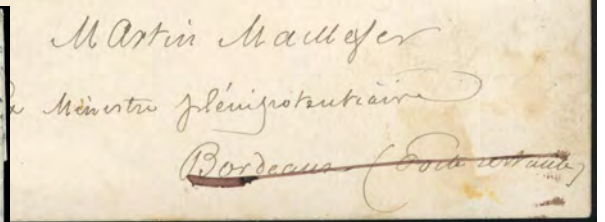 Martin Maillefer
Ministre plénipotentiaire
Bordeaux (Poste restante)